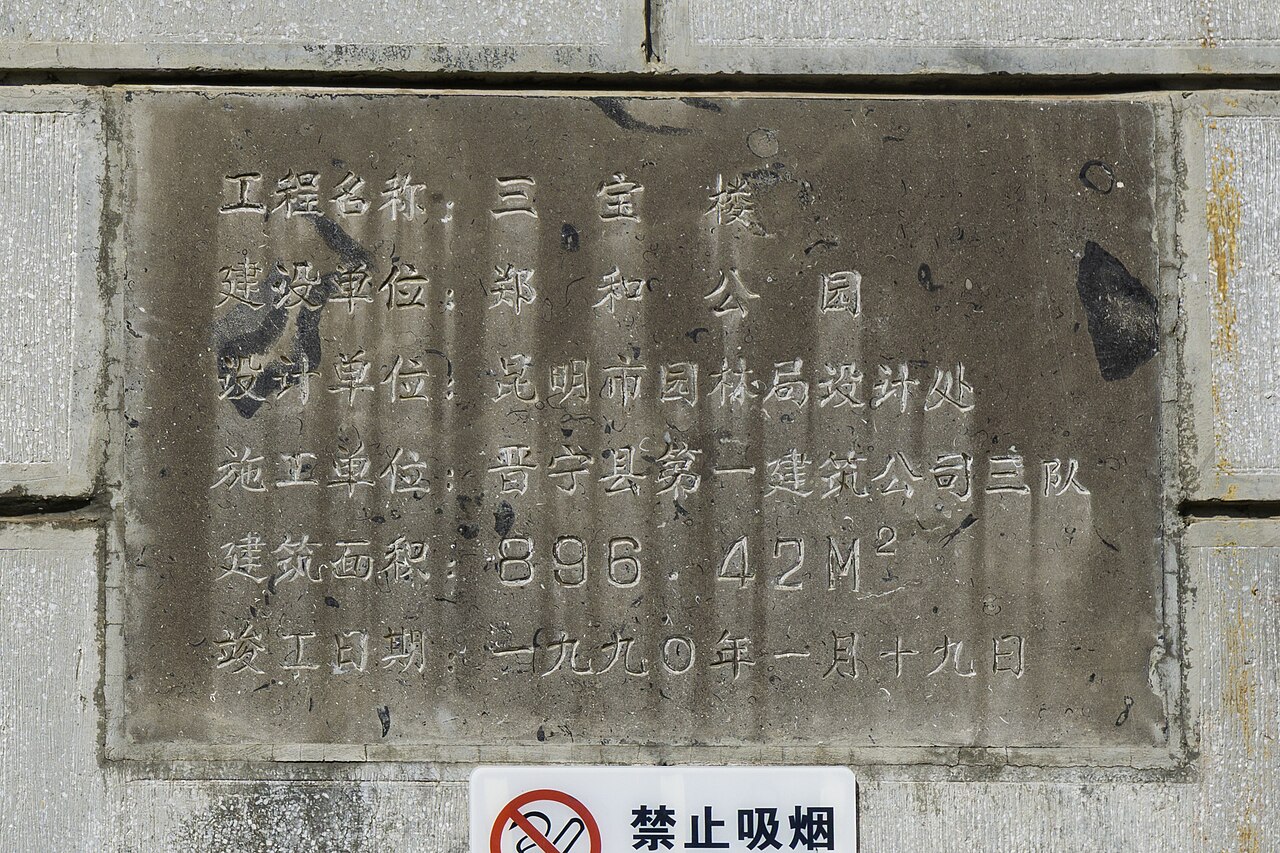 工程名称：三宝楼
建设单位：郑和公园
设计单位：昆明市园林局设计处
施工单位：晋宁县第一建筑公司三队
建筑面积：896.42M²
竣工日期：一九九〇年一月十九日
禁止吸烟